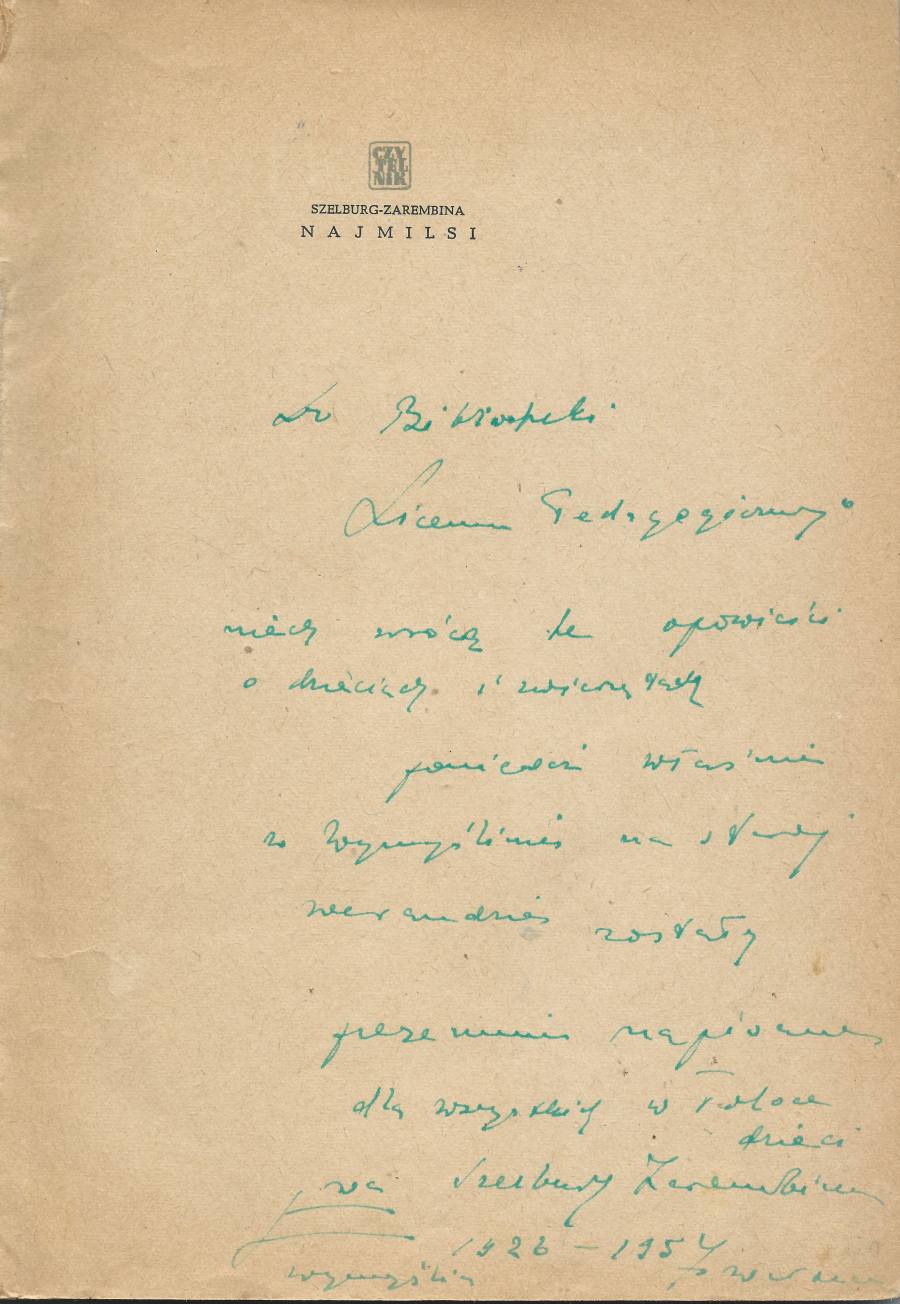 CZY
TEL
NIK
SZELBURG-ZAREMBINA
NAJMILSI
Do Biblioteki
Liceum Pedagogicznego
niech wrócą te opowieści
o dzieciach i zwierzętach
ponieważ właśnie
w Wymyślinie na starej
werandzie zostały
przeze mnie napisane
dla wszystkich w Polsce
dzieci
Ewa Szelburg Zarembina
1926 – 1957
Wymyślin